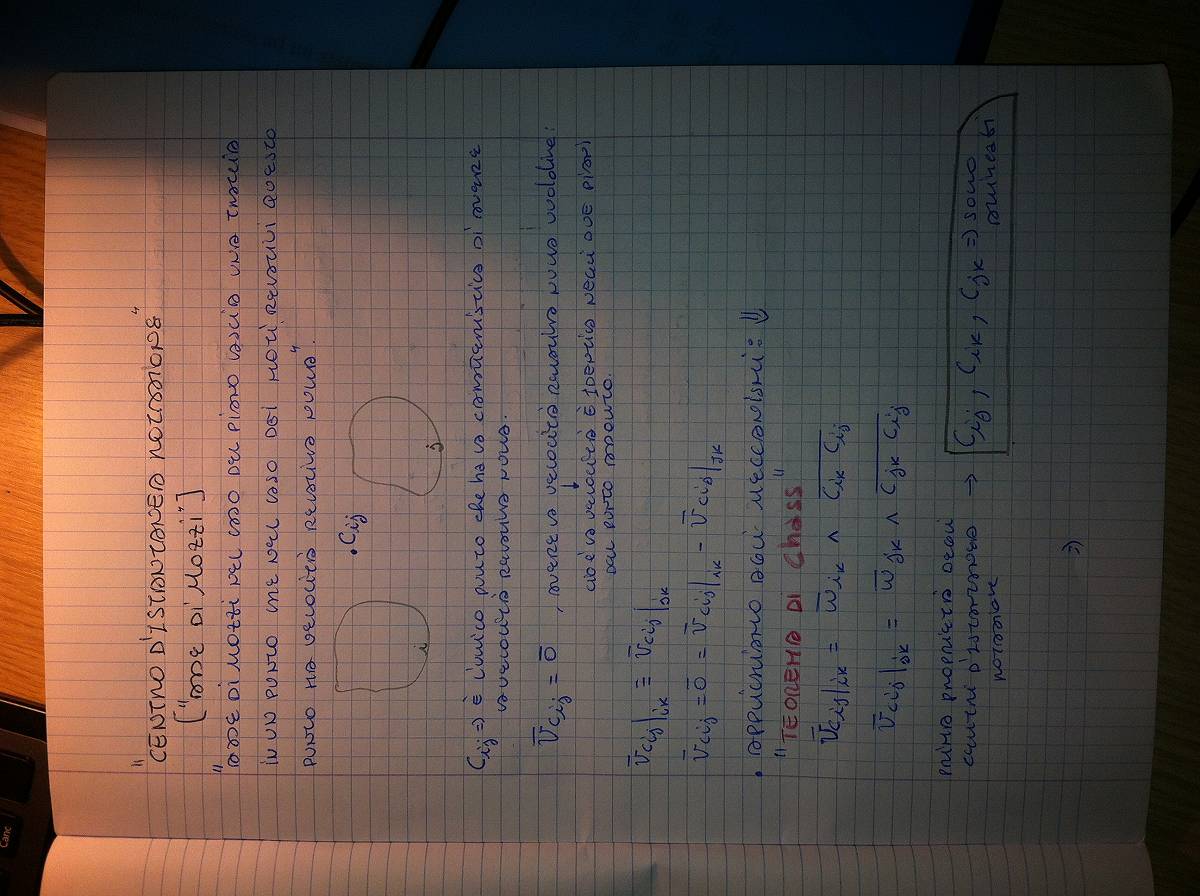 "CENTRO D'ISTANTANEA ROTAZIONE"
["ASSE DI MOZZI"]
"ASSE DI MOZZI NEL CASO DEL PIANO LASCIA UNA TRACCIA
IN UN PUNTO ME NEL CASO DEI MOTI RELATIVI QUESTO
PUNTO HA VELOCITÀ RELATIVA NULLA".
• Cij
i
j
Cij => È L'UNICO PUNTO CHE HA LA CARATTERISTICA DI AVERE
LA VELOCITÀ RELATIVA NULLA.
V̄cij = 0̄ , AVERE LA VELOCITÀ RELATIVA NULLA VUOL DIRE:
↓
CIOÈ LA VELOCITÀ È IDENTICA NEGLI DUE PIANI
DEL PUNTO
V̄cij|ik ≡ V̄cij|jk
V̄cij = 0̄ = V̄cij|ik - V̄cij|jk
• APPLICHIAMO AGLI MECCANISMI: ⇓
"TEOREMA DI Chass"
V̄cij|ik = w̄ik ∧ Cik Cij
V̄cij|jk = w̄jk ∧ Cjk Cij
PRIMA PROPRIETÀ DEGLI
CENTRI D'ISTANTANEA → Cij, Cik, Cjk => SONO
ROTAZIONE ALLINEATI
:)
Canc